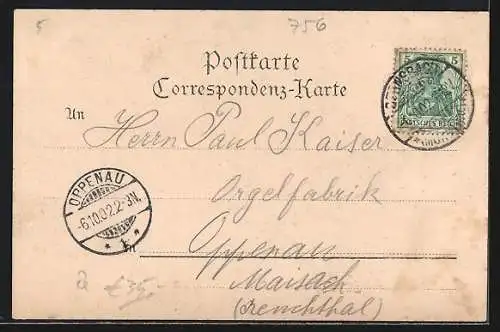 5
756
Postkarte
Correspondenz-Karte
An
Herrn Paul Kaiser
Orgelfabrik
in Oppenau
Maisach
(Renchthal)
5
DEUTSCHES REICH
OPPENAU
-6.10.02.2-3N.
* 1 *
a £35,-